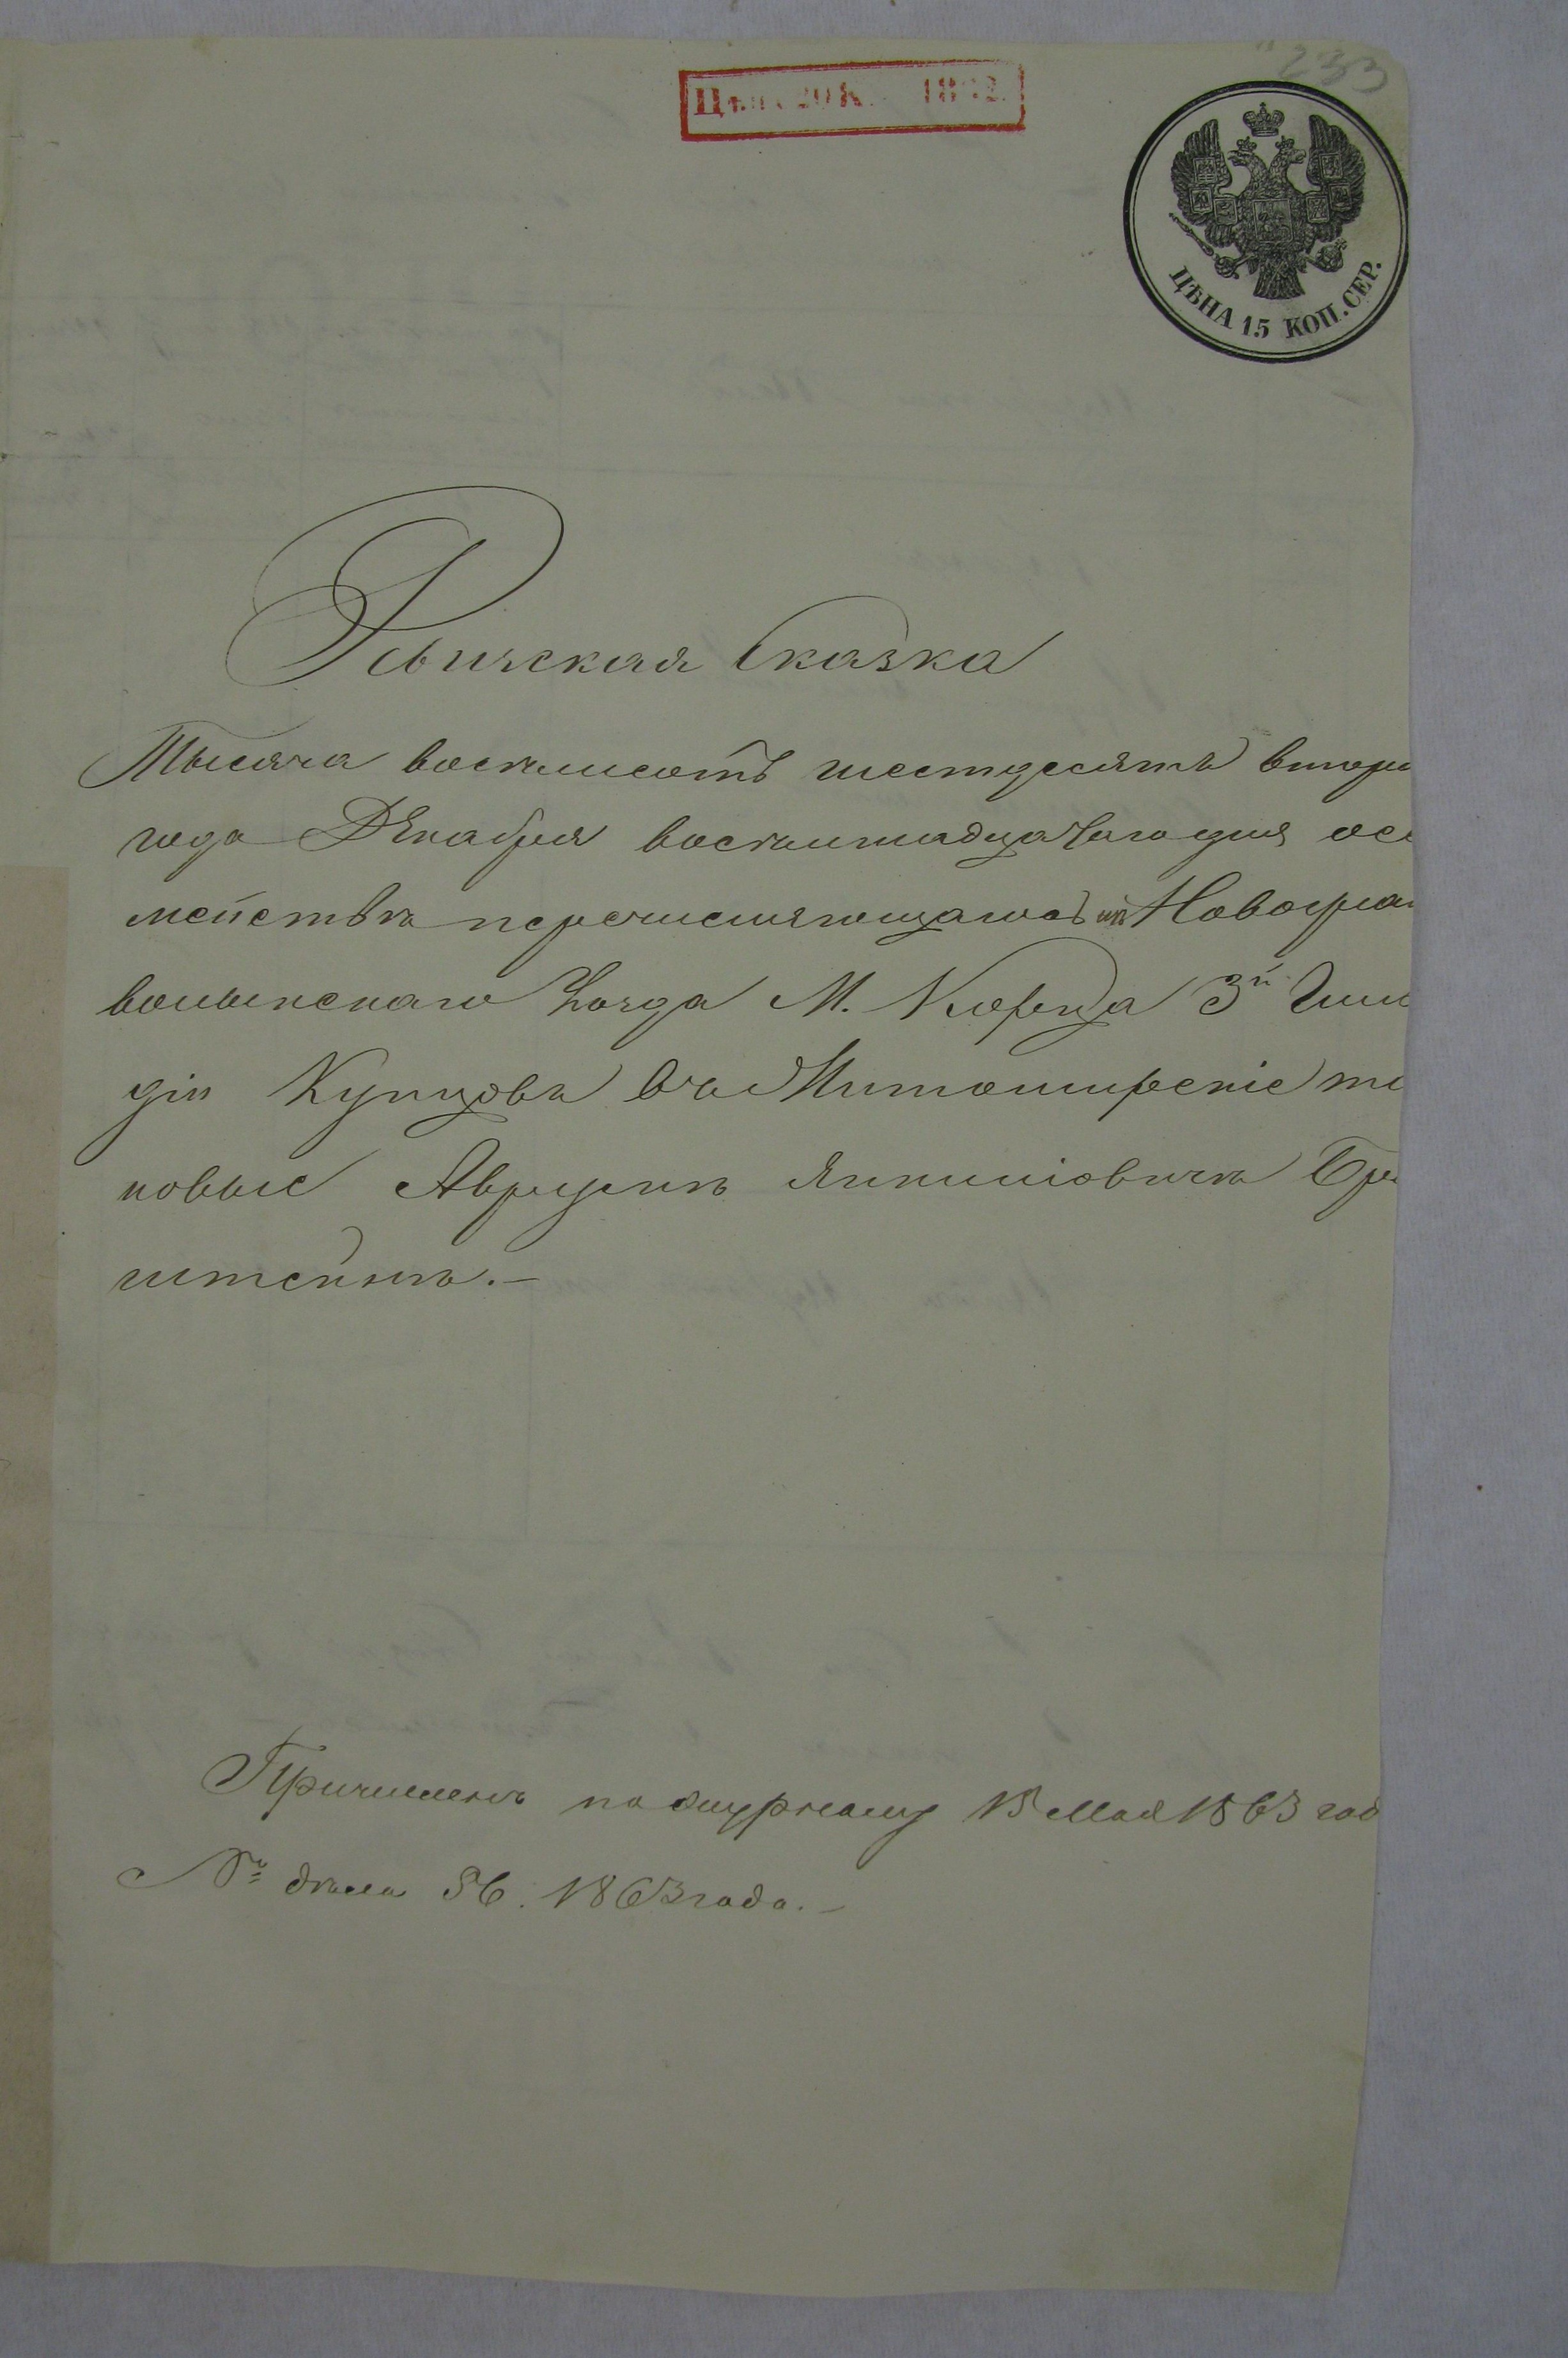 233
Цѣна 20 К. 1862.
ЦѢНА 15 КОП. СЕР.
Ревизская Сказка
Тысяча восемьсотъ шестдесятъ втора
года Декабря восемнадцатаго дня осе
мействѣ перечисляющагося изъ Новоград
волынскаго Уѣзда М. Кореца 3й Гиль
діи Купцовъ въ Житомирскіе та
ковые Аврумъ Янкелiовичъ Бро
штейнъ.—
Причисленъ по журналу 15 Мая 1863 год
№ дѣла 56. 1863 года.—